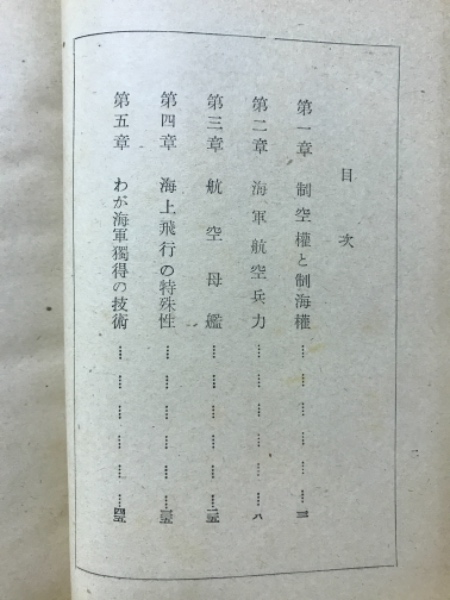 目次
第一章 制空權と制海權…………………三
第二章 海軍航空兵力…………………八
第三章 航空母艦…………………二五
第四章 海上飛行の特殊性…………………三五
第五章 わが海軍獨得の技術…………………四五